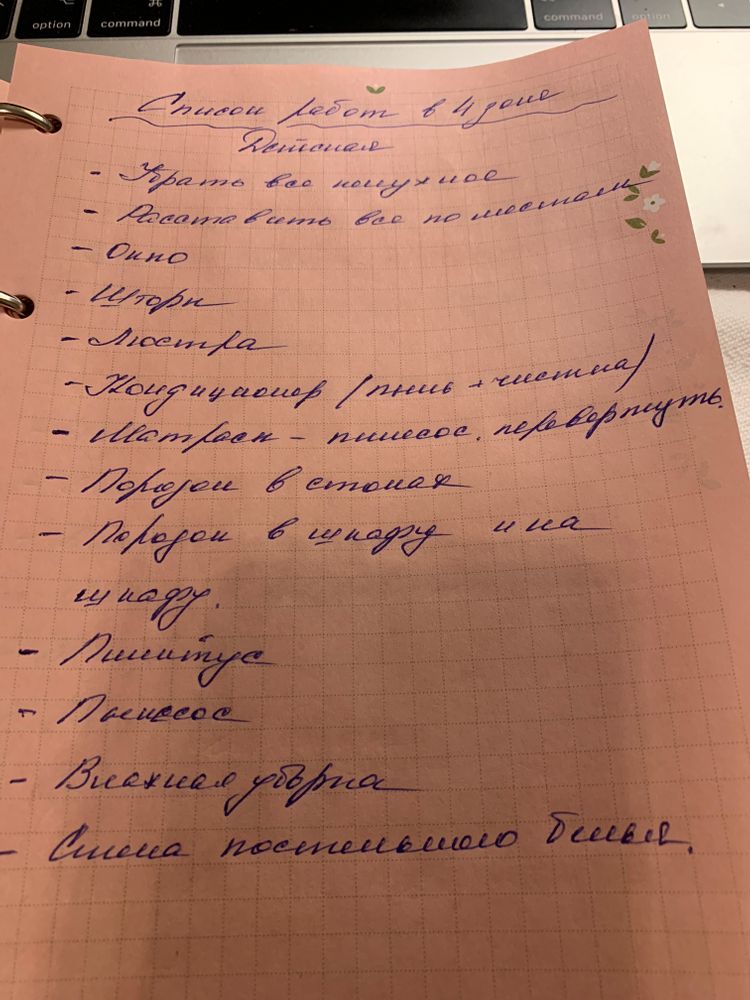 option
command
⌘
command
option
Список работ в 4 зоне
Детская
- Убрать все ненужное
- Расставить все по местам
- Окно
- Шторы
- Люстра
- Кондиционер (пыль + чистка)
- Матрасы - пылесос, перевернуть.
- Порядок в столах
- Порядок в шкафу и на
шкафу.
- Плинтус
- Пылесос
- Влажная уборка
- Смена постельного белья.